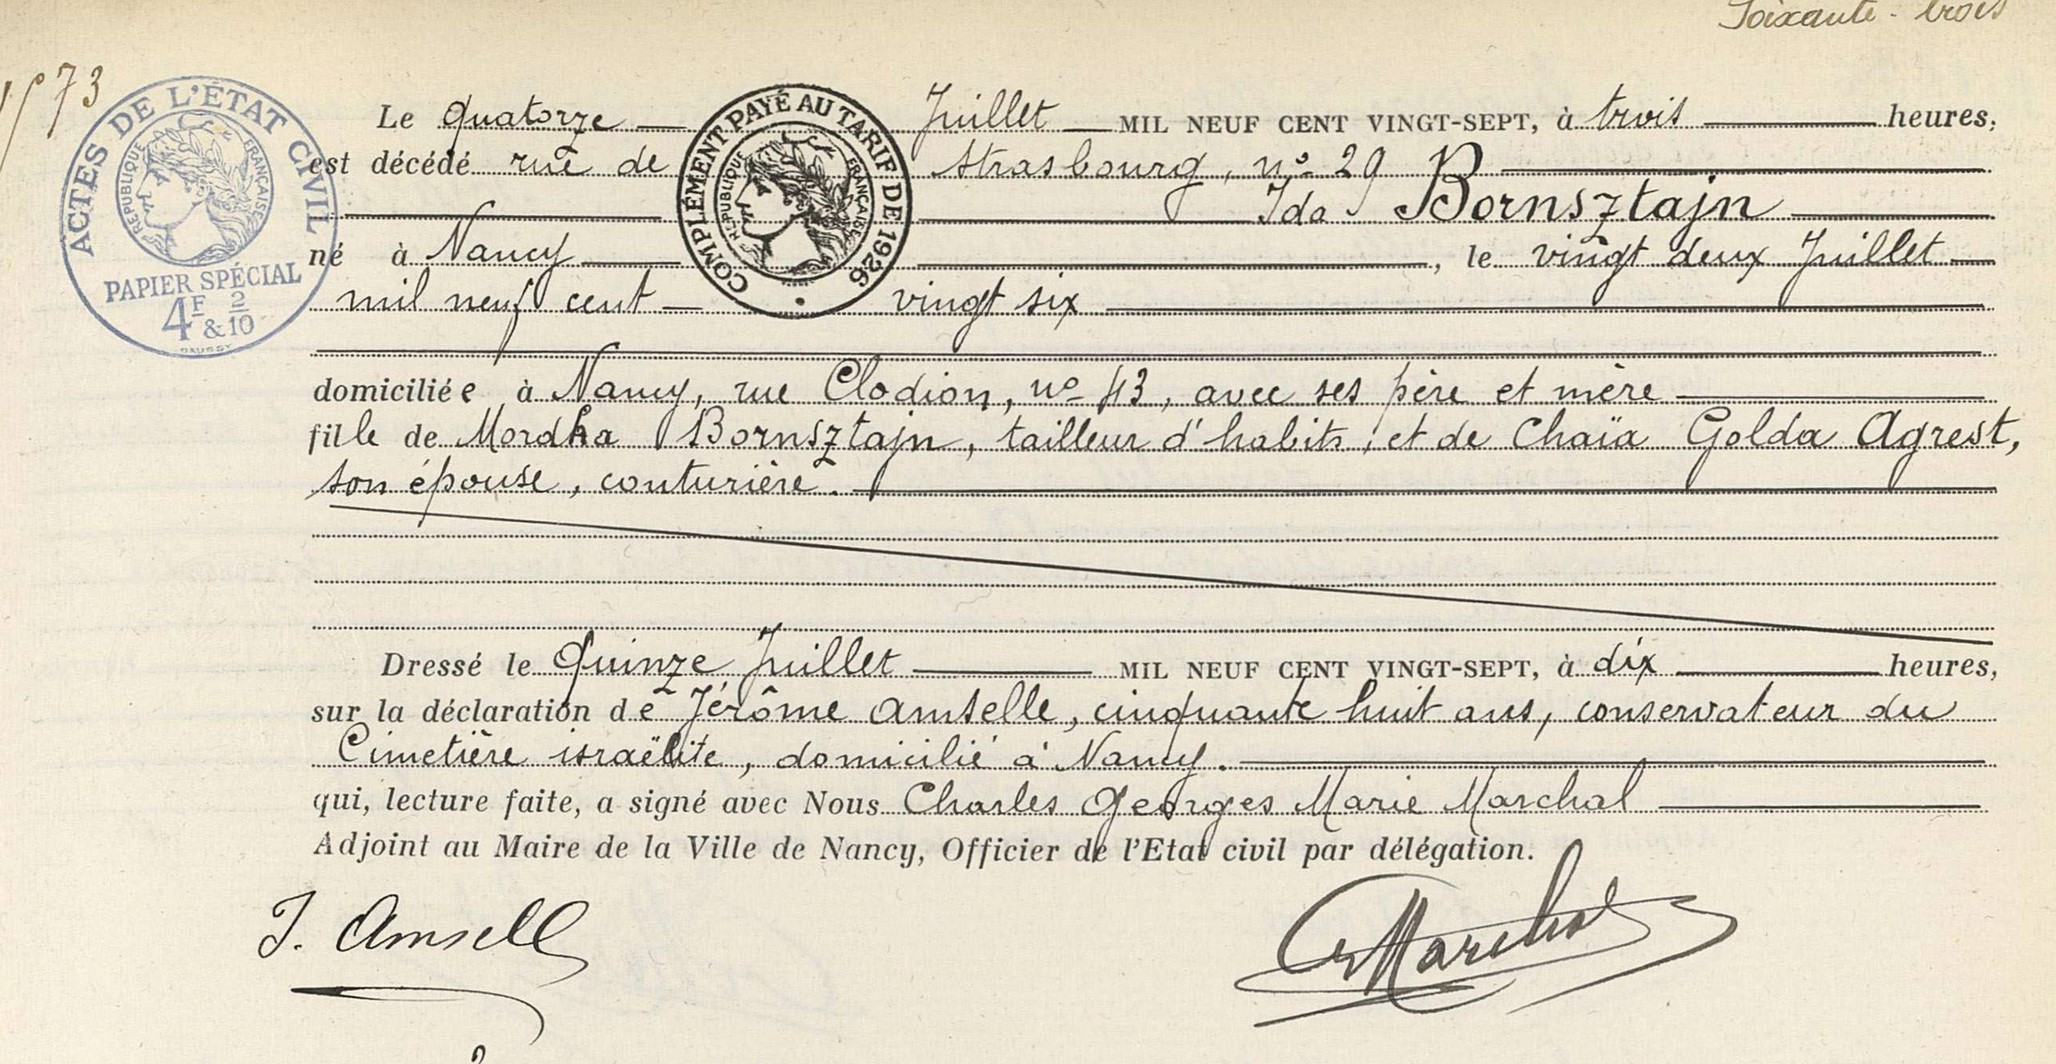 Soixante-trois
1573
ACTES DE L'ÉTAT CIVIL
RÉPUBLIQUE FRANÇAISE
PAPIER SPÉCIAL
4F & 2/10
COMPLÉMENT PAYÉ AU TARIF DE 1926
RÉPUBLIQUE FRANÇAISE
Le quatorze Juillet MIL NEUF CENT VINGT-SEPT, à trois heures,
est décédé rue de Strasbourg, nº 29
Ida Bornsztajn
né à Nancy, le vingt deux Juillet
mil neuf cent vingt six
domiciliée à Nancy, rue Clodion, nº 43, avec ses père et mère
fille de Mordka Bornsztajn, tailleur d'habits, et de Chaïa Golda Agrest,
son épouse, couturière.
Dressé le quinze Juillet MIL NEUF CENT VINGT-SEPT, à dix heures,
sur la déclaration de Jérôme Amselle, cinquante huit ans, conservateur du
Cimetière israëlite, domicilié à Nancy.
qui, lecture faite, a signé avec Nous Charles Georges Marie Marchal
Adjoint au Maire de la Ville de Nancy, Officier de l'Etat civil par délégation.
J. Amsell
Marchal